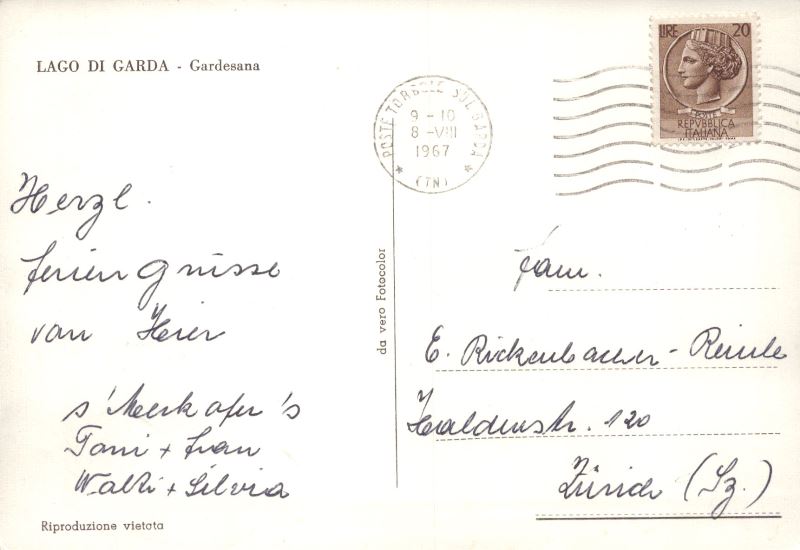 LAGO DI GARDA - Gardesana
POSTE TORBOLE SUL GARDA
9 - 10
8 -VIII
1967
(TN)
LIRE 20
REPVBBLICA
ITALIANA
Herzl.
feriengrüsse
von Hier
Toni + Fran
Walti + Silvia
Riproduzione vietata
da vero Fotocolor
Fam.
E. Rickenbacher-
Haldenstr. 120
Zürich (Sz.)